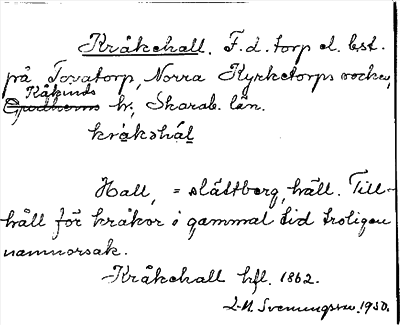 Kråkehall. F.d. torp el. bst.
på Tovatorp, Norra Kyrketorps socken,
Kåkinds
Gudhems hr, Skarab. län.
kråkshál
Hall, = slättberg, häll. Till-
håll för kråkor i gammal tid troligen
namnorsak.
Kråkehall hfl. 1862.
L-M. Svenungsson. 1950.